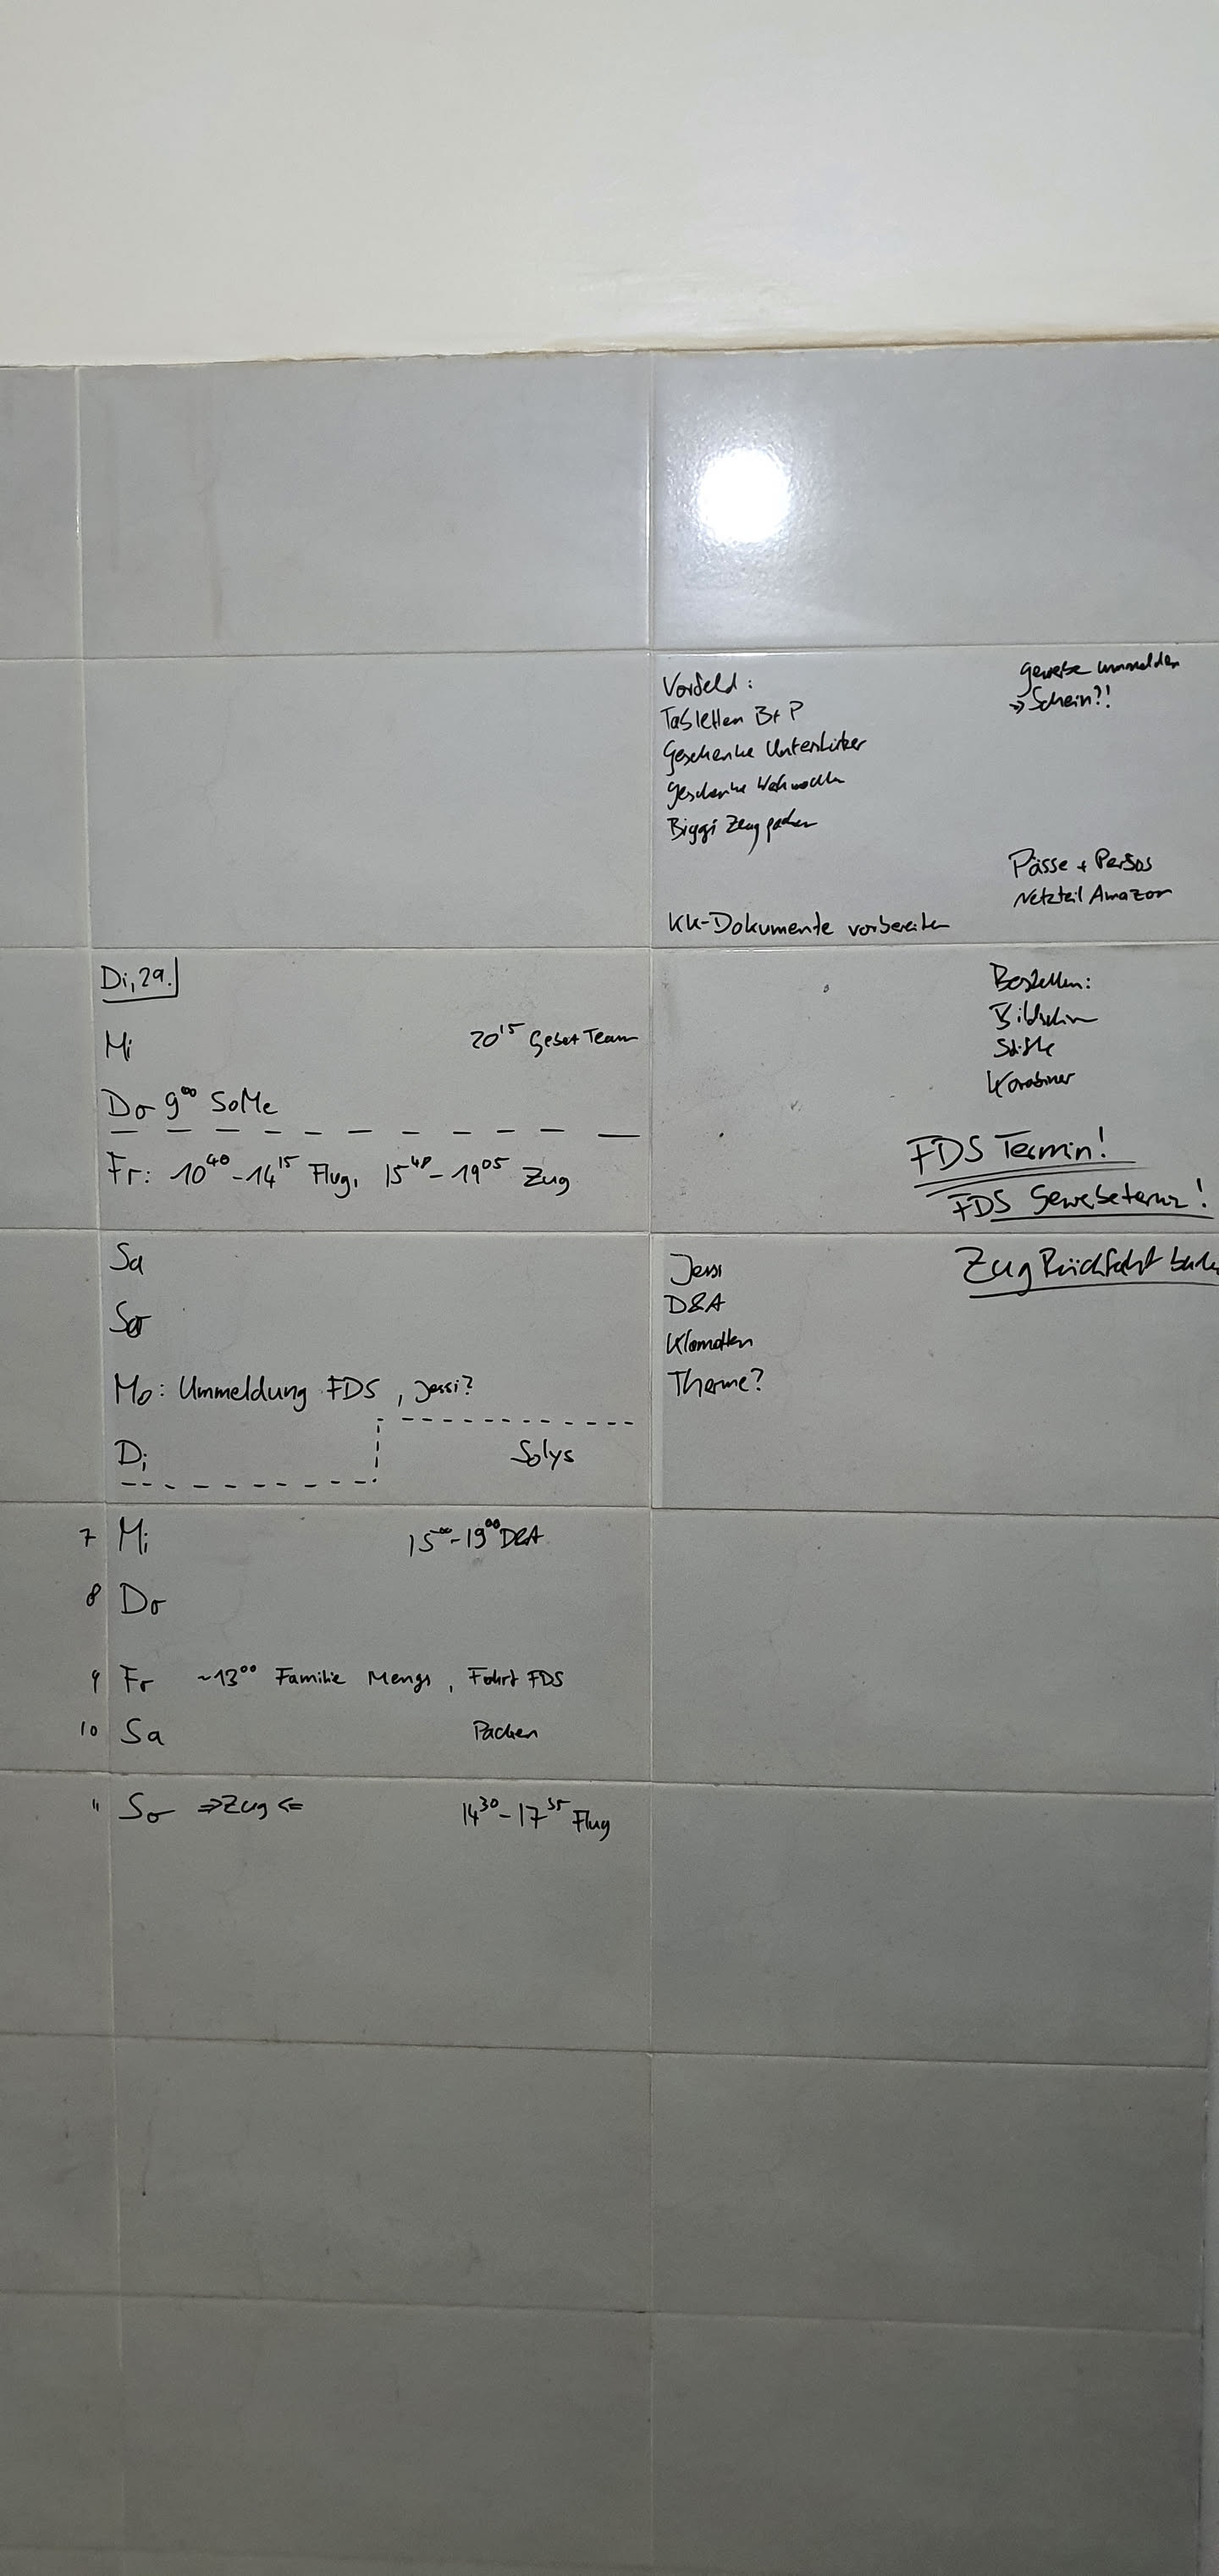 Vorfeld:
Tabletten B+P
Geschenke Unterstützer
Geschenke Weihnachten
Biggi Zeug packen
KK-Dokumente vorbereiten
Gewerbe ummelden
=> Schein?!
Pässe + Persos
Netzteil Amazon
Di, 29.
Mi 20¹⁵ Gebet Team
Do 9⁰⁰ SoMe
Fr: 10⁴⁰-14¹⁵ Flug, 15⁴⁸-19⁰⁵ Zug
Bestellen:
Bildschirm
Stifte
Karabiner
FDS Termin!
FDS Gewerbetermin!
Zug Rückfahrt
Sa
So
Mo: Ummeldung FDS, Jessi?
Di Solys
Jessi
D&A
Klamotten
Therme?
7 Mi 15⁰⁰-19⁰⁰ D&A
8 Do
9 Fr ~13⁰⁰ Familie Mengs, Fahrt FDS
10 Sa Packen
11 So => Zug <= 14³⁰-17³⁵ Flug